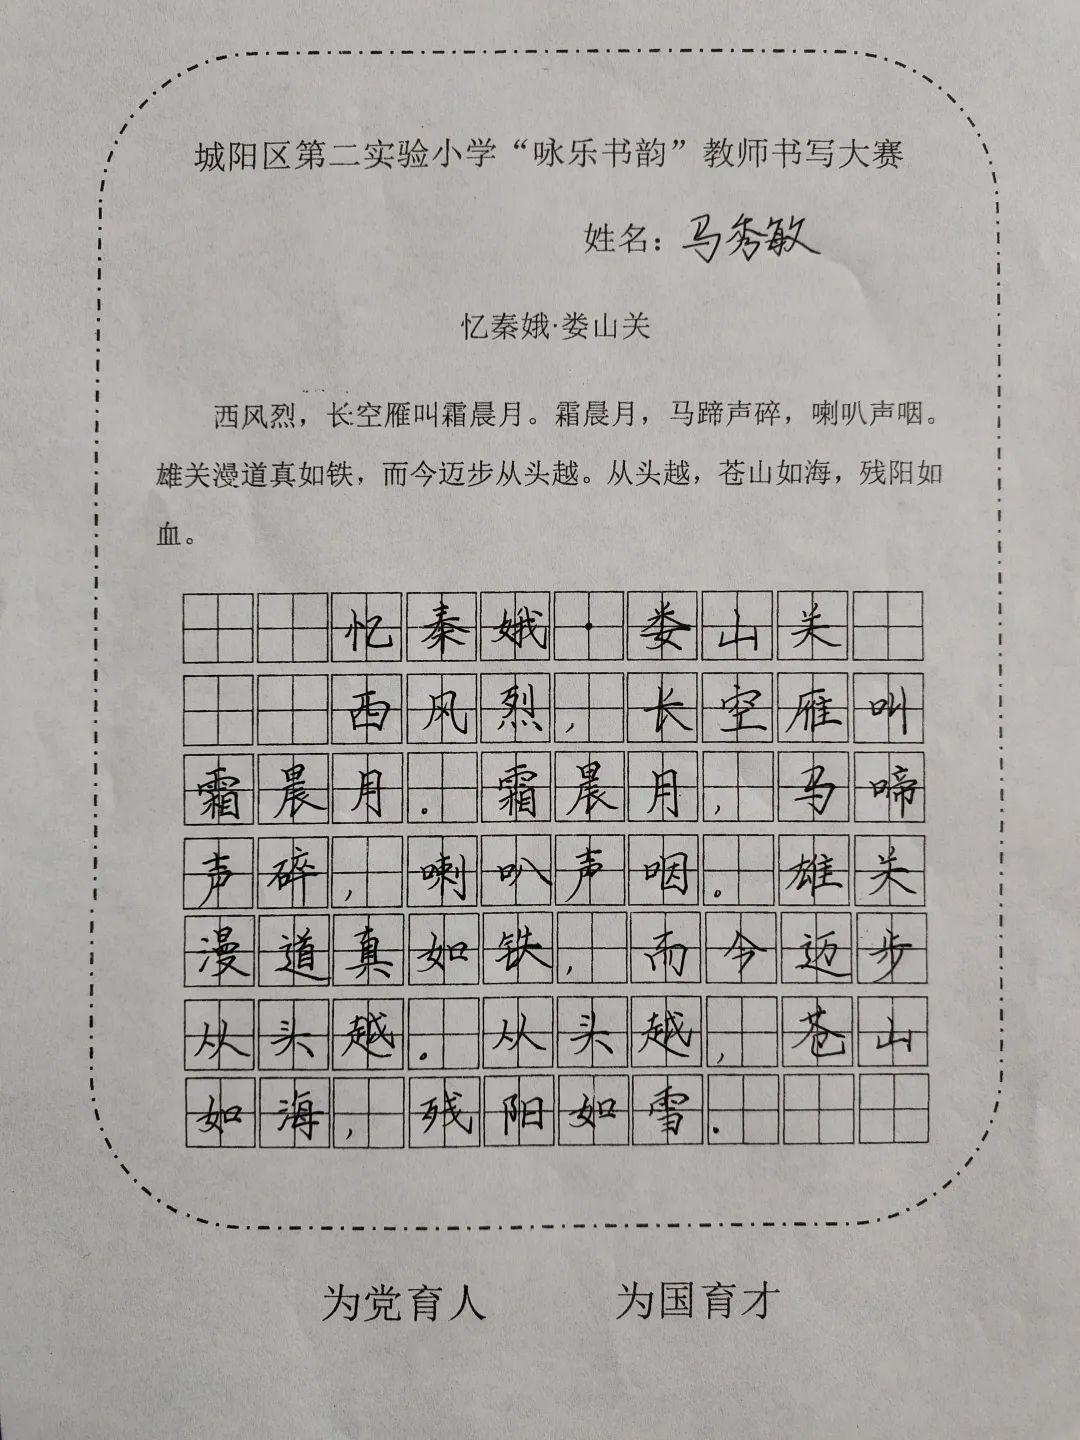 城阳区第二实验小学“咏乐书韵”教师书写大赛
姓名：马秀敏
忆秦娥·娄山关
西风烈，长空雁叫霜晨月。霜晨月，马蹄声碎，喇叭声咽。
雄关漫道真如铁，而今迈步从头越。从头越，苍山如海，残阳如
血。
忆秦娥·娄山关
西风烈，长空雁叫
霜晨月。霜晨月，马啼
声碎，喇叭声咽。雄关
漫道真如铁，而今迈步
从头越。从头越，苍山
如海，残阳如雪。
为党育人 为国育才